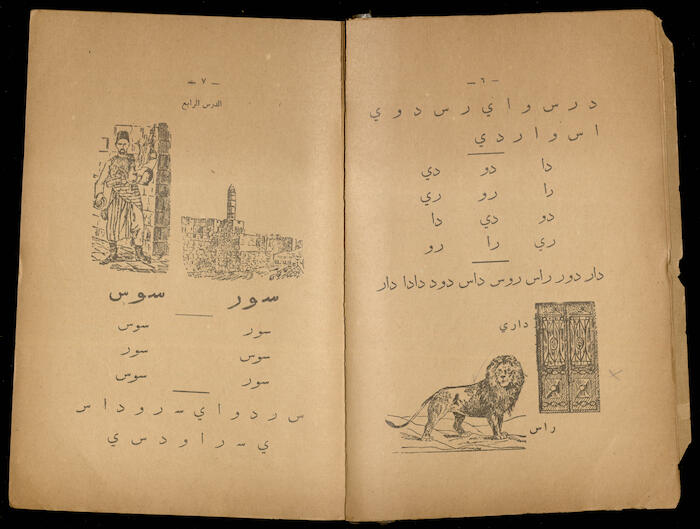 — ٦ —
د ر س و ا ي ر س د و ي
ا س و ا ر د ي
دا دو دي
را رو ري
دو دي دا
ري را رو
دار دور راس روس داس دود دادا دار
داري
راس
— ٧ —
الدرس الرابع
سور سوس
سور سوس
سوس سور
سور سوس
س ر د و ا ي س ر و د ا س
ي س ر ا و د س ي